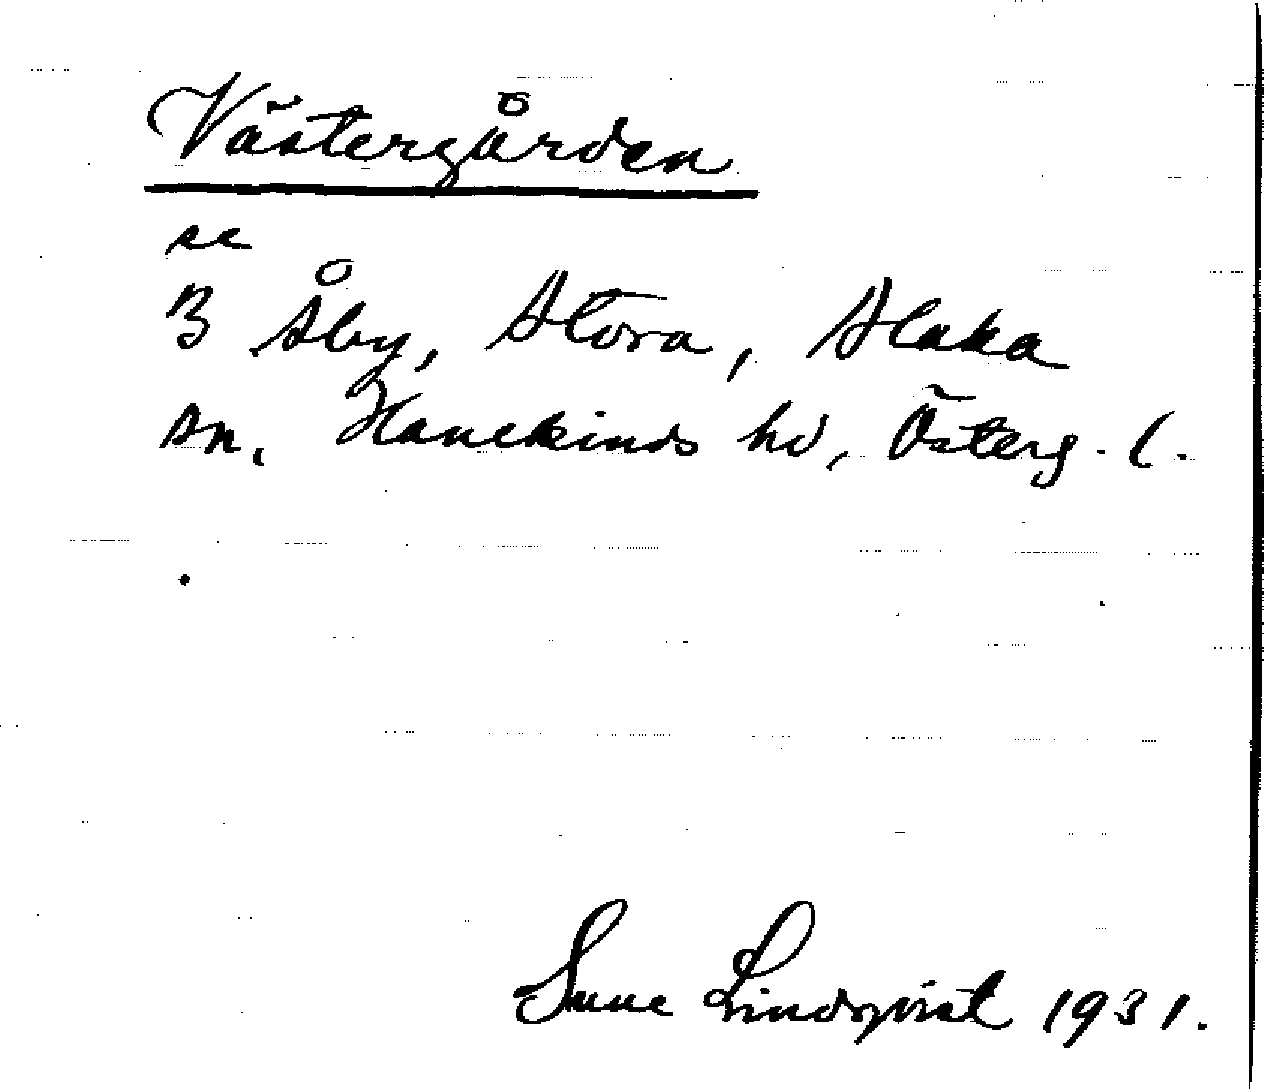 Västergården
se
3 Åby, Stora, Slaka
sn, Hanekinds hd, Österg. l.
Sune Lindqvist 1931.